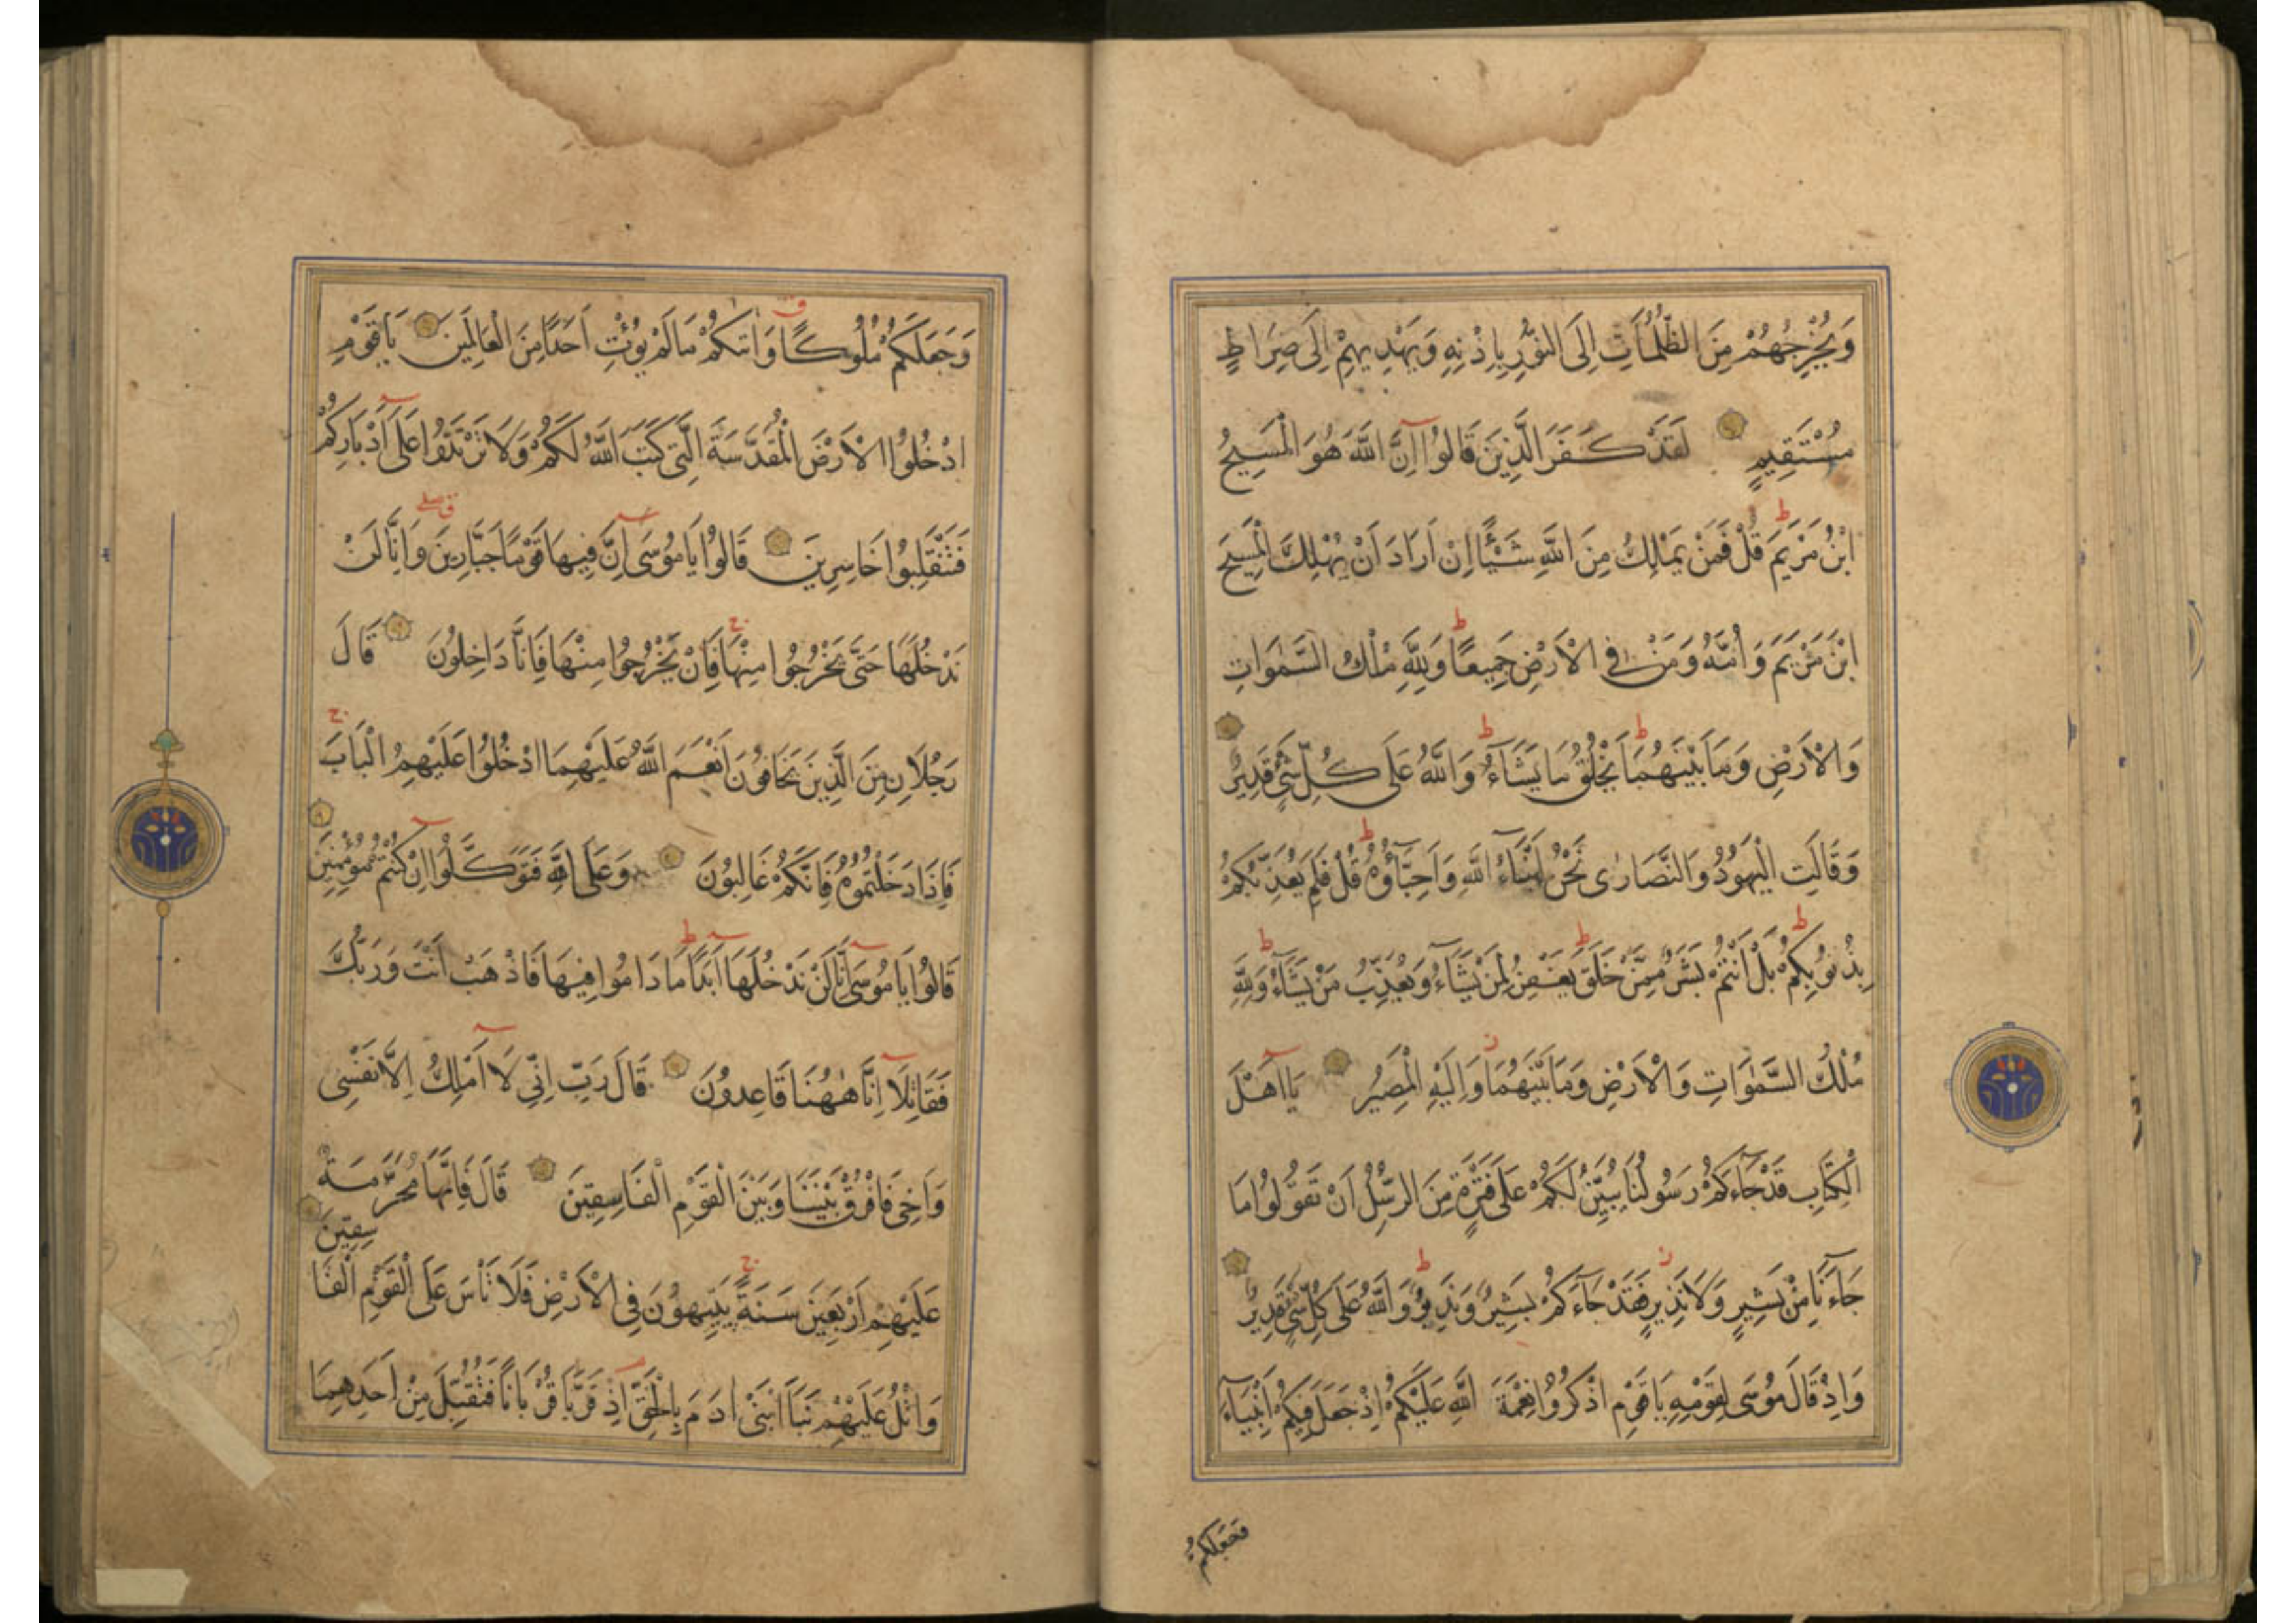 وَيُخْرِجُهُمْ مِنَ الظُّلُمَاتِ اِلَى النُّورِ بِاِذْنِهِ وَيَهْدِيهِمْ اِلَى صِرَاطٍ
مُسْتَقِيمٍ لَقَدْ كَفَرَ الَّذِينَ قَالُوا اِنَّ اللّٰهَ هُوَ الْمَسِيحُ
ابْنُ مَرْيَمَ قُلْ فَمَنْ يَمْلِكُ مِنَ اللّٰهِ شَيْئًا اِنْ اَرَادَ اَنْ يُهْلِكَ الْمَسِيحَ
ابْنَ مَرْيَمَ وَاُمَّهُ وَمَنْ فِي الْاَرْضِ جَمِيعًا وَلِلّٰهِ مُلْكُ السَّمٰوَاتِ
وَالْاَرْضِ وَمَا بَيْنَهُمَا يَخْلُقُ مَا يَشَآءُ وَاللّٰهُ عَلَى كُلِّ شَيْءٍ قَدِيرٌ
وَقَالَتِ الْيَهُودُ وَالنَّصَارٰى نَحْنُ اَبْنَآءُ اللّٰهِ وَاَحِبَّآؤُهُ قُلْ فَلِمَ يُعَذِّبُكُمْ
بِذُنُوبِكُمْ بَلْ اَنْتُمْ بَشَرٌ مِمَّنْ خَلَقَ يَغْفِرُ لِمَنْ يَشَآءُ وَيُعَذِّبُ مَنْ يَشَآءُ وَلِلّٰهِ
مُلْكُ السَّمٰوَاتِ وَالْاَرْضِ وَمَا بَيْنَهُمَا وَاِلَيْهِ الْمَصِيرُ يَا اَهْلَ
الْكِتَابِ قَدْ جَآءَكُمْ رَسُولُنَا يُبَيِّنُ لَكُمْ عَلَى فَتْرَةٍ مِنَ الرُّسُلِ اَنْ تَقُولُوا مَا
جَآءَنَا مِنْ بَشِيرٍ وَلَا نَذِيرٍ فَقَدْ جَآءَكُمْ بَشِيرٌ وَنَذِيرٌ وَاللّٰهُ عَلَى كُلِّ شَيْءٍ قَدِيرٌ
وَاِذْ قَالَ مُوسَى لِقَوْمِهِ يَا قَوْمِ اذْكُرُوا نِعْمَةَ اللّٰهِ عَلَيْكُمْ اِذْ جَعَلَ فِيكُمْ اَنْبِيَآءَ
وَجَعَلَكُمْ
وَجَعَلَكُمْ مُلُوكًا وَاٰتٰىكُمْ مَا لَمْ يُؤْتِ اَحَدًا مِنَ الْعَالَمِينَ يَا قَوْمِ
ادْخُلُوا الْاَرْضَ الْمُقَدَّسَةَ الَّتِي كَتَبَ اللّٰهُ لَكُمْ وَلَا تَرْتَدُّوا عَلَى اَدْبَارِكُمْ
فَتَنْقَلِبُوا خَاسِرِينَ قَالُوا يَا مُوسَى اِنَّ فِيهَا قَوْمًا جَبَّارِينَ وَاِنَّا لَنْ
نَدْخُلَهَا حَتَّى يَخْرُجُوا مِنْهَا فَاِنْ يَخْرُجُوا مِنْهَا فَاِنَّا دَاخِلُونَ قَالَ
رَجُلَانِ مِنَ الَّذِينَ يَخَافُونَ اَنْعَمَ اللّٰهُ عَلَيْهِمَا ادْخُلُوا عَلَيْهِمُ الْبَابَ
فَاِذَا دَخَلْتُمُوهُ فَاِنَّكُمْ غَالِبُونَ وَعَلَى اللّٰهِ فَتَوَكَّلُوا اِنْ كُنْتُمْ مُؤْمِنِينَ
قَالُوا يَا مُوسَى اِنَّا لَنْ نَدْخُلَهَا اَبَدًا مَا دَامُوا فِيهَا فَاذْهَبْ اَنْتَ وَرَبُّكَ
فَقَاتِلَا اِنَّا هٰهُنَا قَاعِدُونَ قَالَ رَبِّ اِنِّي لَا اَمْلِكُ اِلَّا نَفْسِي
وَاَخِي فَافْرُقْ بَيْنَنَا وَبَيْنَ الْقَوْمِ الْفَاسِقِينَ قَالَ فَاِنَّهَا مُحَرَّمَةٌ
عَلَيْهِمْ اَرْبَعِينَ سَنَةً يَتِيهُونَ فِي الْاَرْضِ فَلَا تَأْسَ عَلَى الْقَوْمِ الْفَاسِقِينَ
وَاتْلُ عَلَيْهِمْ نَبَاَ ابْنَيْ اٰدَمَ بِالْحَقِّ اِذْ قَرَّبَا قُرْبَانًا فَتُقُبِّلَ مِنْ اَحَدِهِمَا